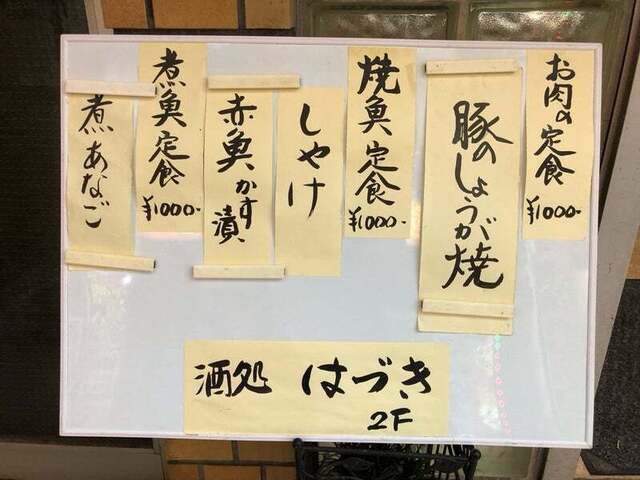 お肉の定食
¥1000-
豚のしょうが焼
焼魚定食
¥1000-
しゃけ
赤魚かす漬
煮魚定食
¥1000-
煮あなご
酒処 はづき
2F